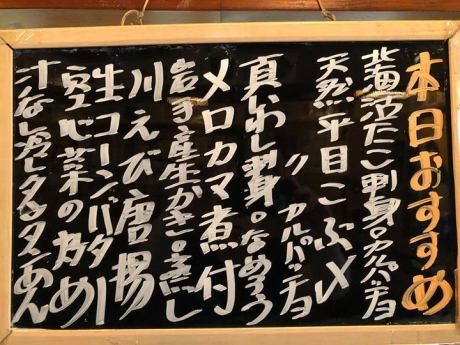 本日おすすめ
北海活たこ刺身。カルパッチョ
天然平目こぶ〆
〃カルパッチョ
真いわし刺身。なめろう
メロカマ煮付
岩手産生かき。蒸し
川えび唐揚
生コーンバター
空心菜の炒め
汁なし冷しタンタンめん